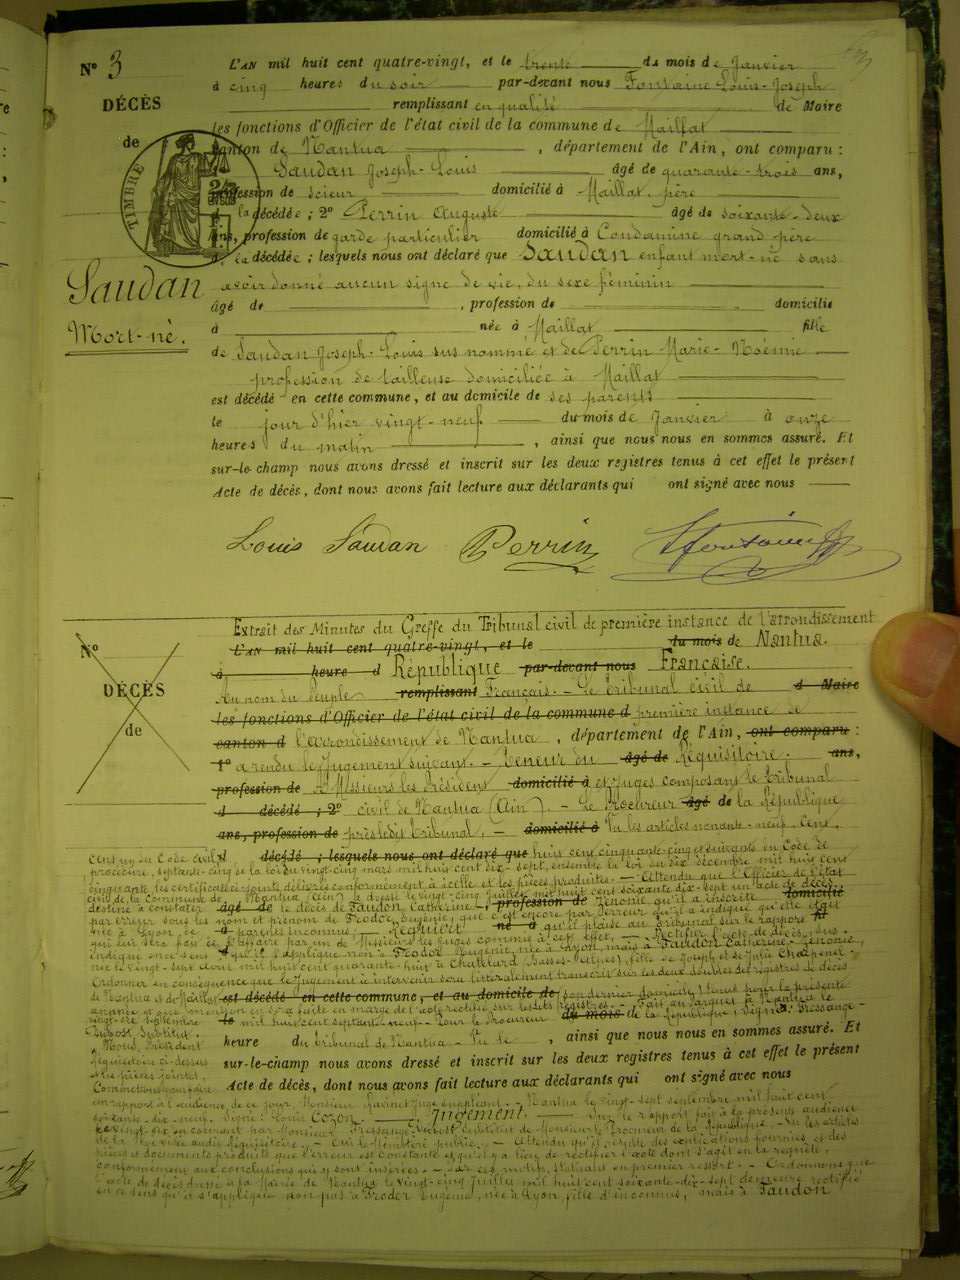 N° 3
DÉCÈS
de
TIMBRE
Saudan
Mort-né.
L'AN mil huit cent quatre-vingt, et le trente du mois de Janvier
à cinq heures du soir par-devant nous Fontaine Louis-Joseph
remplissant en qualité de Maire
les fonctions d'Officier de l'état civil de la commune de Maillat
canton de Nantua, département de l'Ain, ont comparu :
Saudan Joseph-Louis âgé de quarante-trois ans,
profession de scieur domicilié à Maillat père
d la décédée ; 2° Perrin Auguste âgé de soixante-deux
ans, profession de garde particulier domicilié à Condamine grand père
d la décédée ; lesquels nous ont déclaré que Saudan enfant mort-né sans
avoir donné aucun signe de vie, du sexe féminin
âgé de , profession de domicilié
à née à Maillat fille
de Saudan Joseph-Louis sus nommé et de Perrin Marie-Noémie
profession de tailleuse domiciliée à Maillat
est décédé en cette commune, et au domicile de ses parents
le jour d'hier vingt-neuf du mois de Janvier à onze
heures du matin , ainsi que nous nous en sommes assuré. Et
sur-le-champ nous avons dressé et inscrit sur les deux registres tenus à cet effet le présent
Acte de décès, dont nous avons fait lecture aux déclarants qui ont signé avec nous
Louis Saudan Perrin Lfontaine
N°
DÉCÈS
de
Extrait des Minutes du Greffe du Tribunal civil de première instance de l'arrondissement
L'AN mil huit cent quatre-vingt, et le du mois de Nantua.
à heure d République par-devant nous Française.
Au nom du Peuple remplissant Français. - Le Tribunal civil de d Maire
les fonctions d'Officier de l'état civil de la commune d première instance de
canton d l'arrondissement de Nantua, département de l'Ain, ont comparu :
1° a rendu le Jugement suivant. - Teneur du âgé de Réquisitoire. ans,
profession de A Messieurs les Président domicilié à et Juges composant le Tribunal
d décédé ; 2° civil de Nantua (Ain). - Le Procureur âgé de la République
ans, profession de près ledit Tribunal, - domicilié à Vu les articles nonante-neuf, Cent,
Cent un du Code Civil, d décédé ; lesquels nous ont déclaré que huit cent cinquante-cinq et suivants du Code de
procédure, septante-cinq de la loi du vingt-cinq mars mil huit cent dix-sept, ensemble la loi du dix décembre mil huit cent
cinquante, les certificats ci-joints délivrés conformément à icelle et les pièces produites. - Attendu que l'Officier de l'État
civil de la Commune de Nantua (Ain) a dressé le vingt-cinq Juillet mil huit cent soixante dix-sept un acte de décès
destiné à constater âgé de le décès de Faudon Catherine, profession de Zénonie, qu'il a inscrite domicilié
par erreur sous les nom et prénom de Froder Eugénie, que c'est encore par erreur qu'il a indiqué qu'elle était
née à Lyon, de d parents inconnus; - Requiert né à qu'il plaise au Tribunal sur le rapport fil
qui lui sera fait de l'affaire par un de Messieurs les Juges commis à cet effet, - Rectifier l'acte de décès sus
indiqué en ce sens qu'il s'applique non à Froder Eugénie, née à Lyon, mais à Faudon Catherine-Zénonie,
née le vingt-sept Avril mil huit cent quarante-huit à Châtelard (Basses-Alpes), fille de Joseph et de Julie
Ordonner en conséquence que le Jugement à intervenir sera littéralement transcrit sur les deux doubles des registres de décès
de Nantua et de Maillat est décédé en cette commune, et au domicile de son dernier domicile, tenus pour la présente
année et que mention en sera faite en marge de l'acte rectifié sur lesdits registres. - Fait au Parquet à Nantua le
vingt-sept septembre le mil huit cent septante-neuf. - Pour le Procureur du mois de la République, Signé: Bressange-
Dubost Substitut.
heure du Tribunal de Nantua. - Vu le , ainsi que nous nous en sommes assuré. Et
Nous, Président
réquisitoire ci-dessus
sur-le-champ nous avons dressé et inscrit sur les deux registres tenus à cet effet le présent
et les pièces jointes,
Acte de décès, dont nous avons fait lecture aux déclarants qui ont signé avec nous
Commettons pour faire
rapport à l'audience de ce jour, Monsieur Juge suppléant. - Nantua le vingt-sept septembre mil huit cent
septante-dix-neuf. Signé: Louis Cozon. Jugement. - Sur le rapport fait à la présente audience
de la loi visée audit Réquisitoire. - Ouï le Ministère public. - Attendu qu'il résulte des explications fournies et des
pièces et documents produits que l'erreur est constante et qu'il y a lieu de rectifier l'acte dont s'agit en la requête,
conformément aux conclusions qui y sont insérées. - Par ces motifs, statuant en premier ressort. - Ordonnons que
l'acte de décès dressé à la Mairie de Nantua le vingt-cinq Juillet mil huit cent soixante-dix-sept demeure rectifié
en ce sens qu'il s'applique non pas à Froder Eugénie, née à Lyon, fille d'inconnus, mais à Faudon